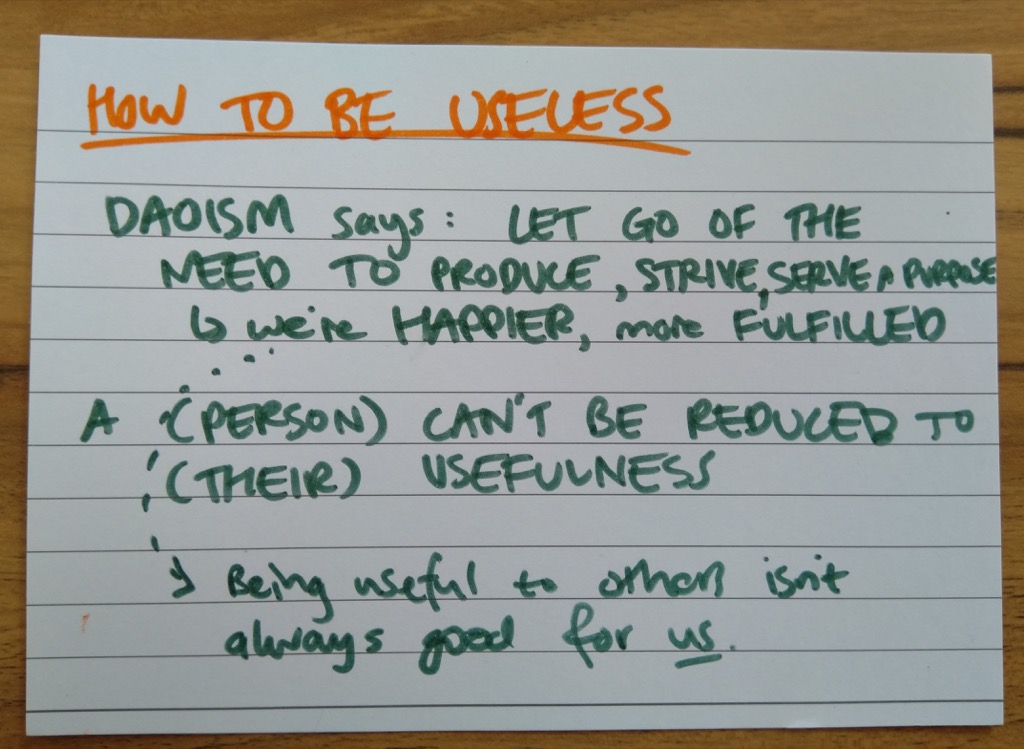 HOW TO BE USELESS
DAOISM says: LET GO OF THE
NEED TO PRODUCE, STRIVE, SERVE A PURPOSE
↳ we're HAPPIER, more FULFILLED
A (PERSON) CAN'T BE REDUCED TO
(THEIR) USEFULNESS
Being useful to others isn't
always good for us.